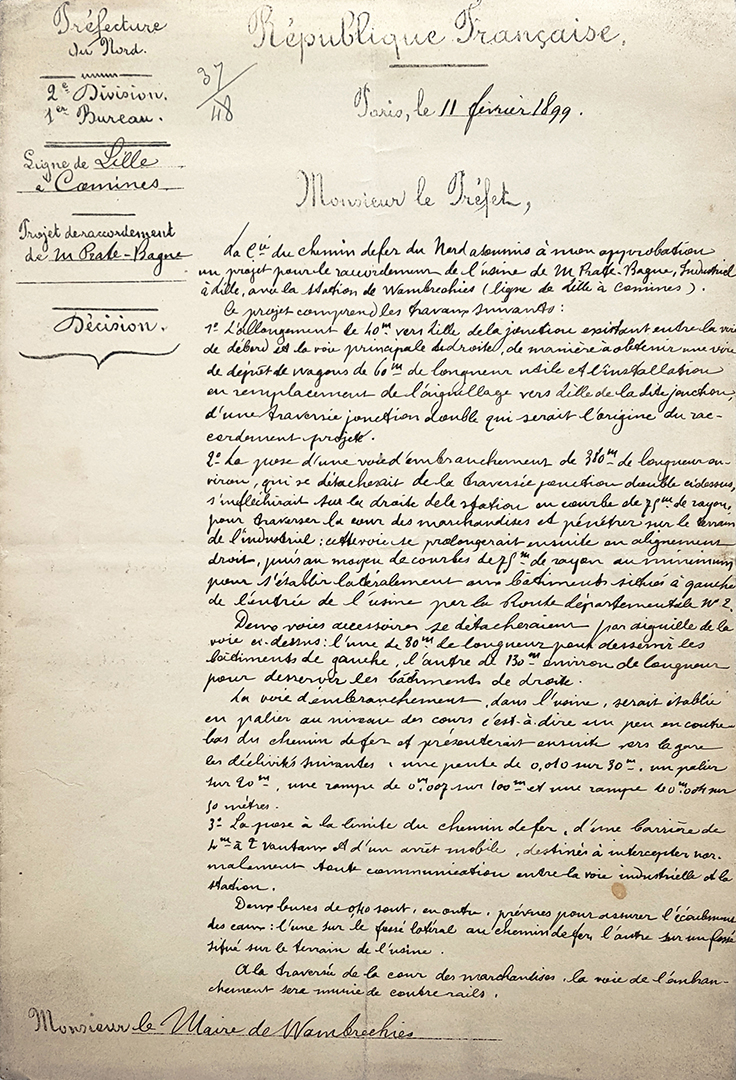 Préfecture
du Nord.
2e Division.
1er Bureau.
Ligne de Lille
à Comines
Projet de raccordement
de M Pratte-Bagne
Décision.
République Française.
37/48
Paris, le 11 février 1899.
Monsieur le Préfet,
La Cie du chemin de fer du Nord a soumis à mon approbation
un projet pour le raccordement de l'usine de M Pratte-Bagne, Industriel
à Lille, avec la station de Wambrechies (ligne de Lille à Comines).
Ce projet comprend les travaux suivants :
1º L'allongement de 40m vers Lille de la jonction existant entre la voie
de débord et la voie principale de droite, de manière à obtenir une voie
de dépôt de wagons de 60m de longueur utile et l'installation
en remplacement de l'aiguillage vers Lille de la dite jonction,
d'une traversée jonction double qui serait l'origine du rac-
cordement projeté.
2º La pose d'une voie d'embranchement de 380m de longueur en-
viron, qui se détacherait de la traversée jonction double ci-dessus,
s'infléchirait sur la droite de la station en courbe de 75m de rayon,
pour traverser la cour des marchandises et pénétrer sur le terrain
de l'industriel ; cette voie se prolongerait ensuite en alignement
droit, puis au moyen de courbes de 75m de rayon au minimum
pour s'établir latéralement aux bâtiments situés à gauche
de l'entrée de l'usine par la Route départementale Nº 2.
Deux voies accessoires se détacheraient par aiguille de la
voie ci-dessus : l'une de 80m de longueur pour desservir les
bâtiments de gauche, l'autre de 130m environ de longueur
pour desservir les bâtiments de droite.
La voie d'embranchement, dans l'usine, serait établie
en palier au niveau des cours c'est-à-dire un peu en contre-
bas du chemin de fer et présenterait ensuite vers la gare
les déclivités suivantes : une pente de 0,010 sur 30m, un palier
sur 20m, une rampe de 0m007 sur 100m et une rampe de 0m004 sur
50 mètres.
3º La pose à la limite du chemin de fer, d'une barrière de
4m à 2 vantaux et d'un arrêt mobile, destinés à intercepter nor-
malement toute communication entre la voie industrielle et la
station.
Deux buses de 0,40 sont, en outre, prévues pour assurer l'écoulement
des eaux : l'une sur le fossé latéral au chemin de fer, l'autre sur un fossé
situé sur le terrain de l'usine.
A la traversée de la cour des marchandises, la voie de l'embran-
chement sera munie de contre rails.
Monsieur le Maire de Wambrechies